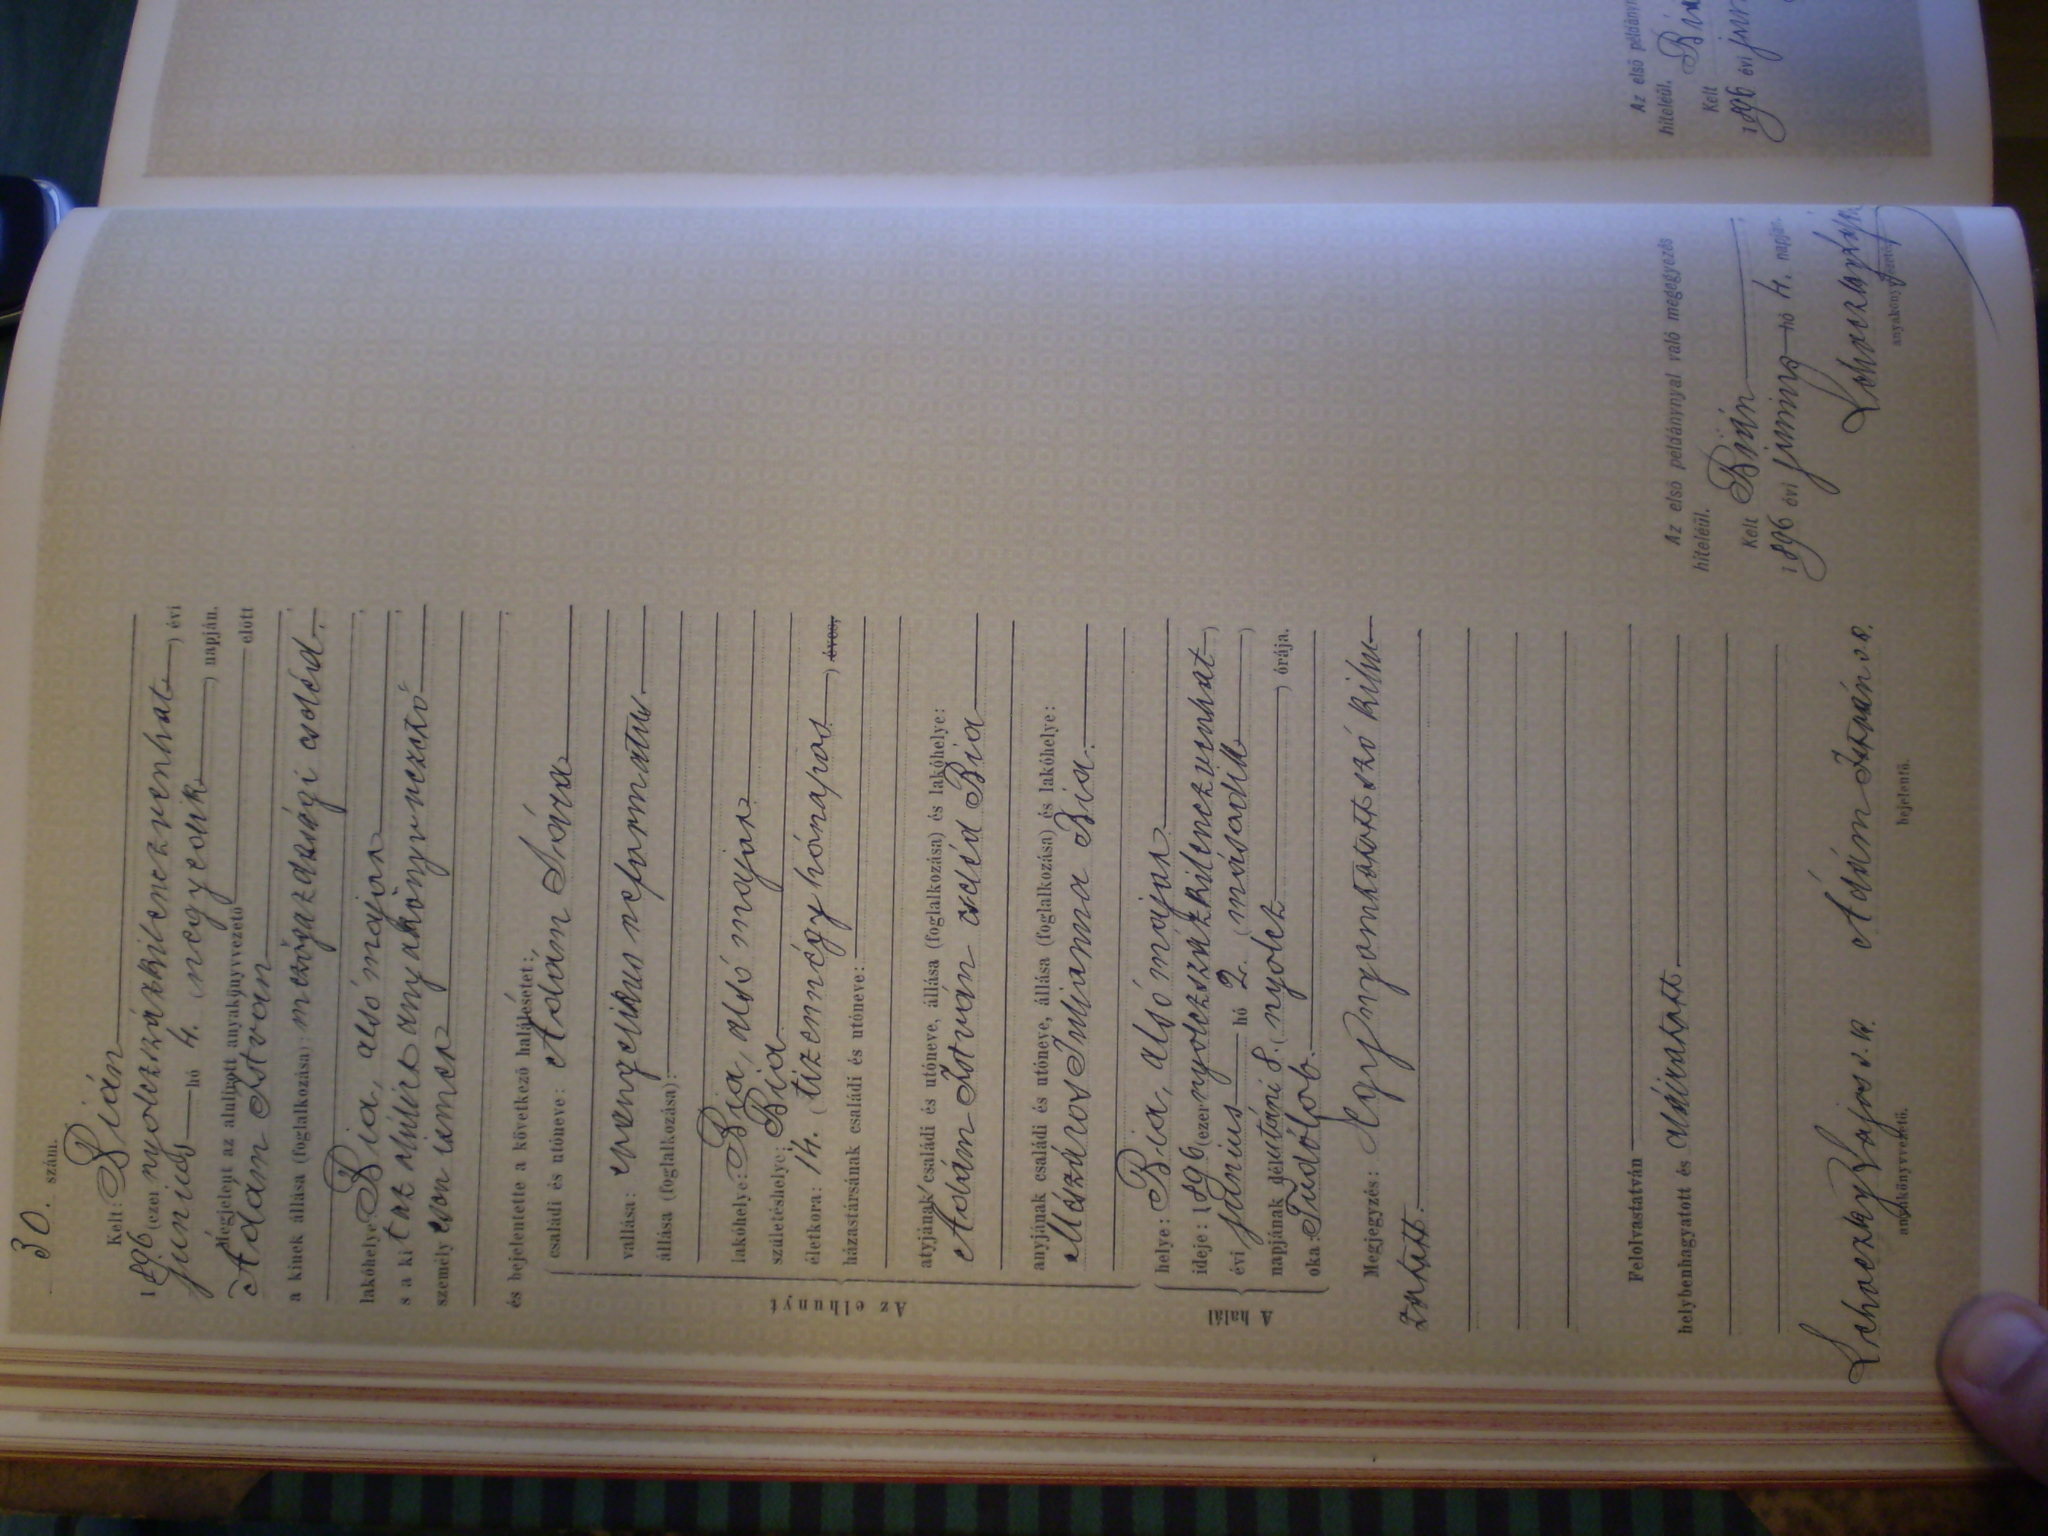 30. szám.
Kelt: Bián
1896 (ezer nyolczszázkilenczvenhat) évi
junius hó 4. (negyedik) napján.
Megjelent az alulirott anyakönyvvezető előtt
Ádám István
a kinek állása (foglalkozása): mezőgazdasági cseléd;
lakóhelye Bia, alsó major;
s a kit az alulirt anyakönyvvezető
személyesen ismer
és bejelentette a következő halálesetet:
Az elhunyt
családi és utóneve: Ádám Sára
vallása: evangelikus reformatus
állása (foglalkozása):
lakóhelye: Bia, alsó major
születéshelye: Bia
életkora: 14. (tizennégy hónapos) éves,
házastársának családi és utóneve:
atyjának családi és utóneve, állása (foglalkozása) és lakóhelye:
Ádám István cseléd Bia
anyjának családi és utóneve, állása (foglalkozása) és lakóhelye:
Mészáros Julianna Bia.
A halál
helye: Bia, alsó major
ideje: 1896 (ezer nyolczszázkilenczvenhat)
évi junius hó 2. (második)
napjának délutáni 8. (nyolcz) órája.
oka: Tüdőlob.
Megjegyzés: Egy nyomtatott szó kihu-
zatott.
Felolvastatván
helybenhagyatott és aláiratott.
Lehoczky Lajos s. k.
anyakönyvvezető.
Ádám István s. k.
bejelentő.
Az első példánynyal való megegyezés
hiteléül.
Kelt Bián
1896 évi junius hó 4. napján.
Lehoczky Lajos
Az első példányn
hiteléül.
Kelt
1896 évi